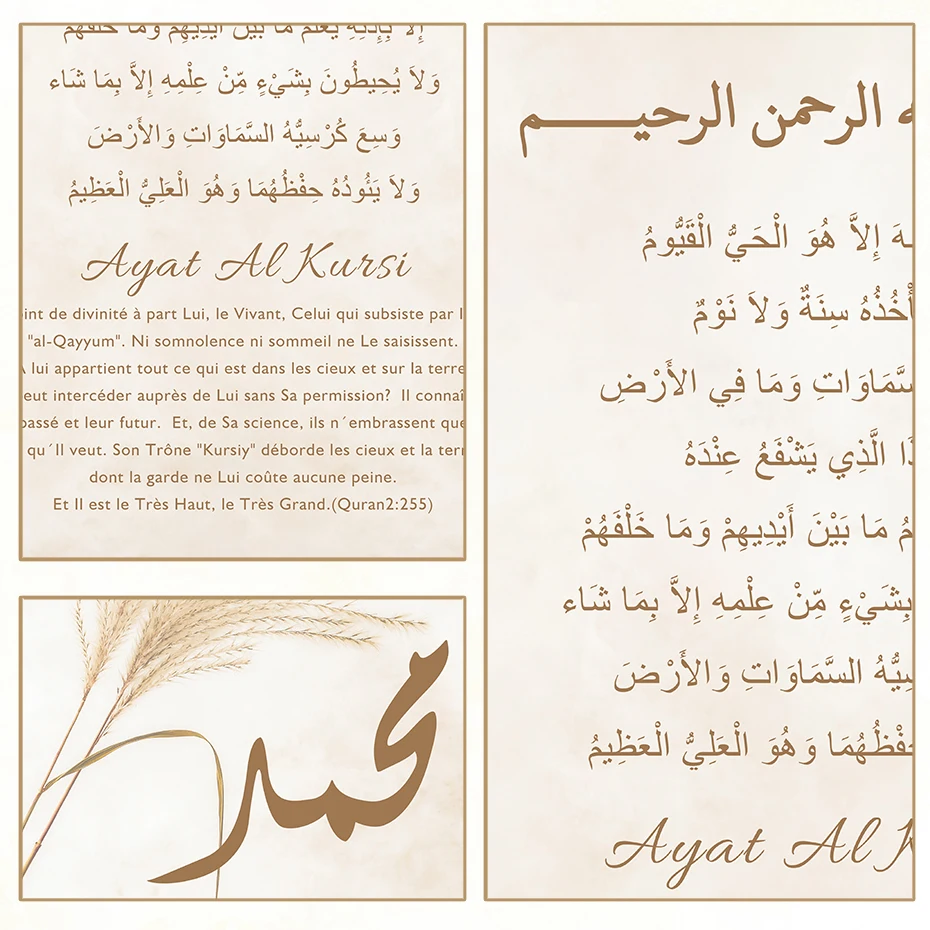 إِلاَّ بِإِذْنِهِ يَعْلَمُ مَا بَيْنَ أَيْدِيهِمْ وَمَا خَلْفَهُمْ
وَلاَ يُحِيطُونَ بِشَيْءٍ مِّنْ عِلْمِهِ إِلاَّ بِمَا شَاء
وَسِعَ كُرْسِيُّهُ السَّمَاوَاتِ وَالأَرْضَ
وَلاَ يَئُودُهُ حِفْظُهُمَا وَهُوَ الْعَلِيُّ الْعَظِيمُ
Ayat Al Kursi
int de divinité à part Lui, le Vivant, Celui qui subsiste par l
"al-Qayyum". Ni somnolence ni sommeil ne Le saisissent.
A lui appartient tout ce qui est dans les cieux et sur la terre
eut intercéder auprès de Lui sans Sa permission? Il connaî
passé et leur futur. Et, de Sa science, ils n´embrassent que
qu´Il veut. Son Trône "Kursiy" déborde les cieux et la terr
dont la garde ne Lui coûte aucune peine.
Et Il est le Très Haut, le Très Grand.(Quran2:255)
محمد
ه الرحمن الرحيـــــم
ـهَ إِلاَّ هُوَ الْحَيُّ الْقَيُّومُ
أْخُذُهُ سِنَةٌ وَلاَ نَوْمٌ
سَّمَاوَاتِ وَمَا فِي الأَرْضِ
ذَا الَّذِي يَشْفَعُ عِنْدَهُ
مُ مَا بَيْنَ أَيْدِيهِمْ وَمَا خَلْفَهُمْ
بِشَيْءٍ مِّنْ عِلْمِهِ إِلاَّ بِمَا شَاء
سِيُّهُ السَّمَاوَاتِ وَالأَرْضَ
حِفْظُهُمَا وَهُوَ الْعَلِيُّ الْعَظِيمُ
Ayat Al K